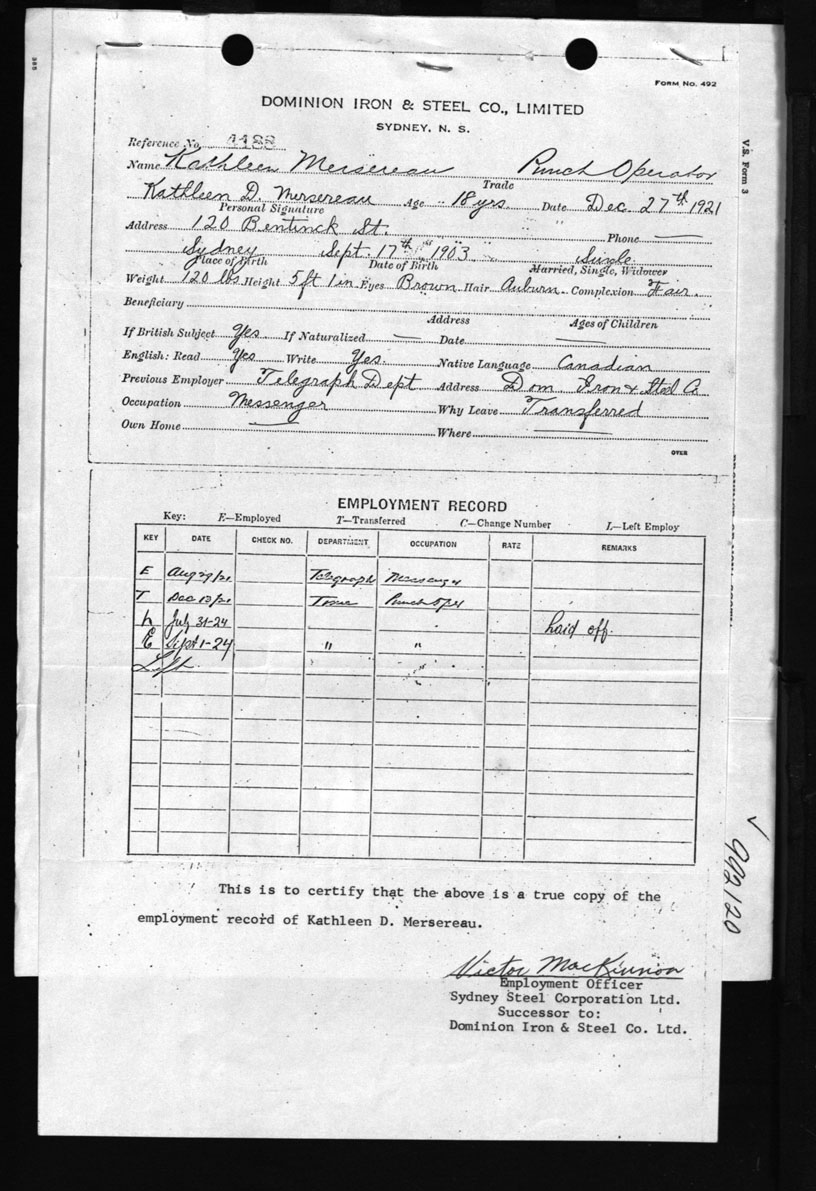 FORM NO. 492
DOMINION IRON & STEEL CO., LIMITED
SYDNEY, N. S.
V.S. Form 3
Reference No. 4488
Name Kathleen Mersereau Trade Punch Operator
Kathleen D. Mersereau Age 18 yrs. Date Dec. 27th 1921
Personal Signature
Address 120 Bentinck St. Phone —
Sydney Sept. 17th 1903 Single
Place of Birth Date of Birth Married, Single, Widower
Weight 120 lbs. Height 5 ft 1 in Eyes Brown Hair Auburn Complexion Fair.
Beneficiary
Address Ages of Children
If British Subject Yes If Naturalized — Date —
English: Read Yes Write Yes. Native Language Canadian
Previous Employer Telegraph Dept Address Dom Iron & Steel Co
Occupation Messenger Why Leave Transferred
Own Home — Where —
OVER
EMPLOYMENT RECORD
Key: E—Employed T—Transferred C—Change Number L—Left Employ
KEY DATE CHECK NO. DEPARTMENT OCCUPATION RATE REMARKS
E Aug 29/21 Telegraph Messenger
T Dec /21 Time Punch Oper
L July 31-24 Laid off.
E Sept 1-24 " "
Left
✓ 992120
This is to certify that the above is a true copy of the
employment record of Kathleen D. Mersereau.
Victor MacKinnon
Employment Officer
Sydney Steel Corporation Ltd.
Successor to:
Dominion Iron & Steel Co. Ltd.